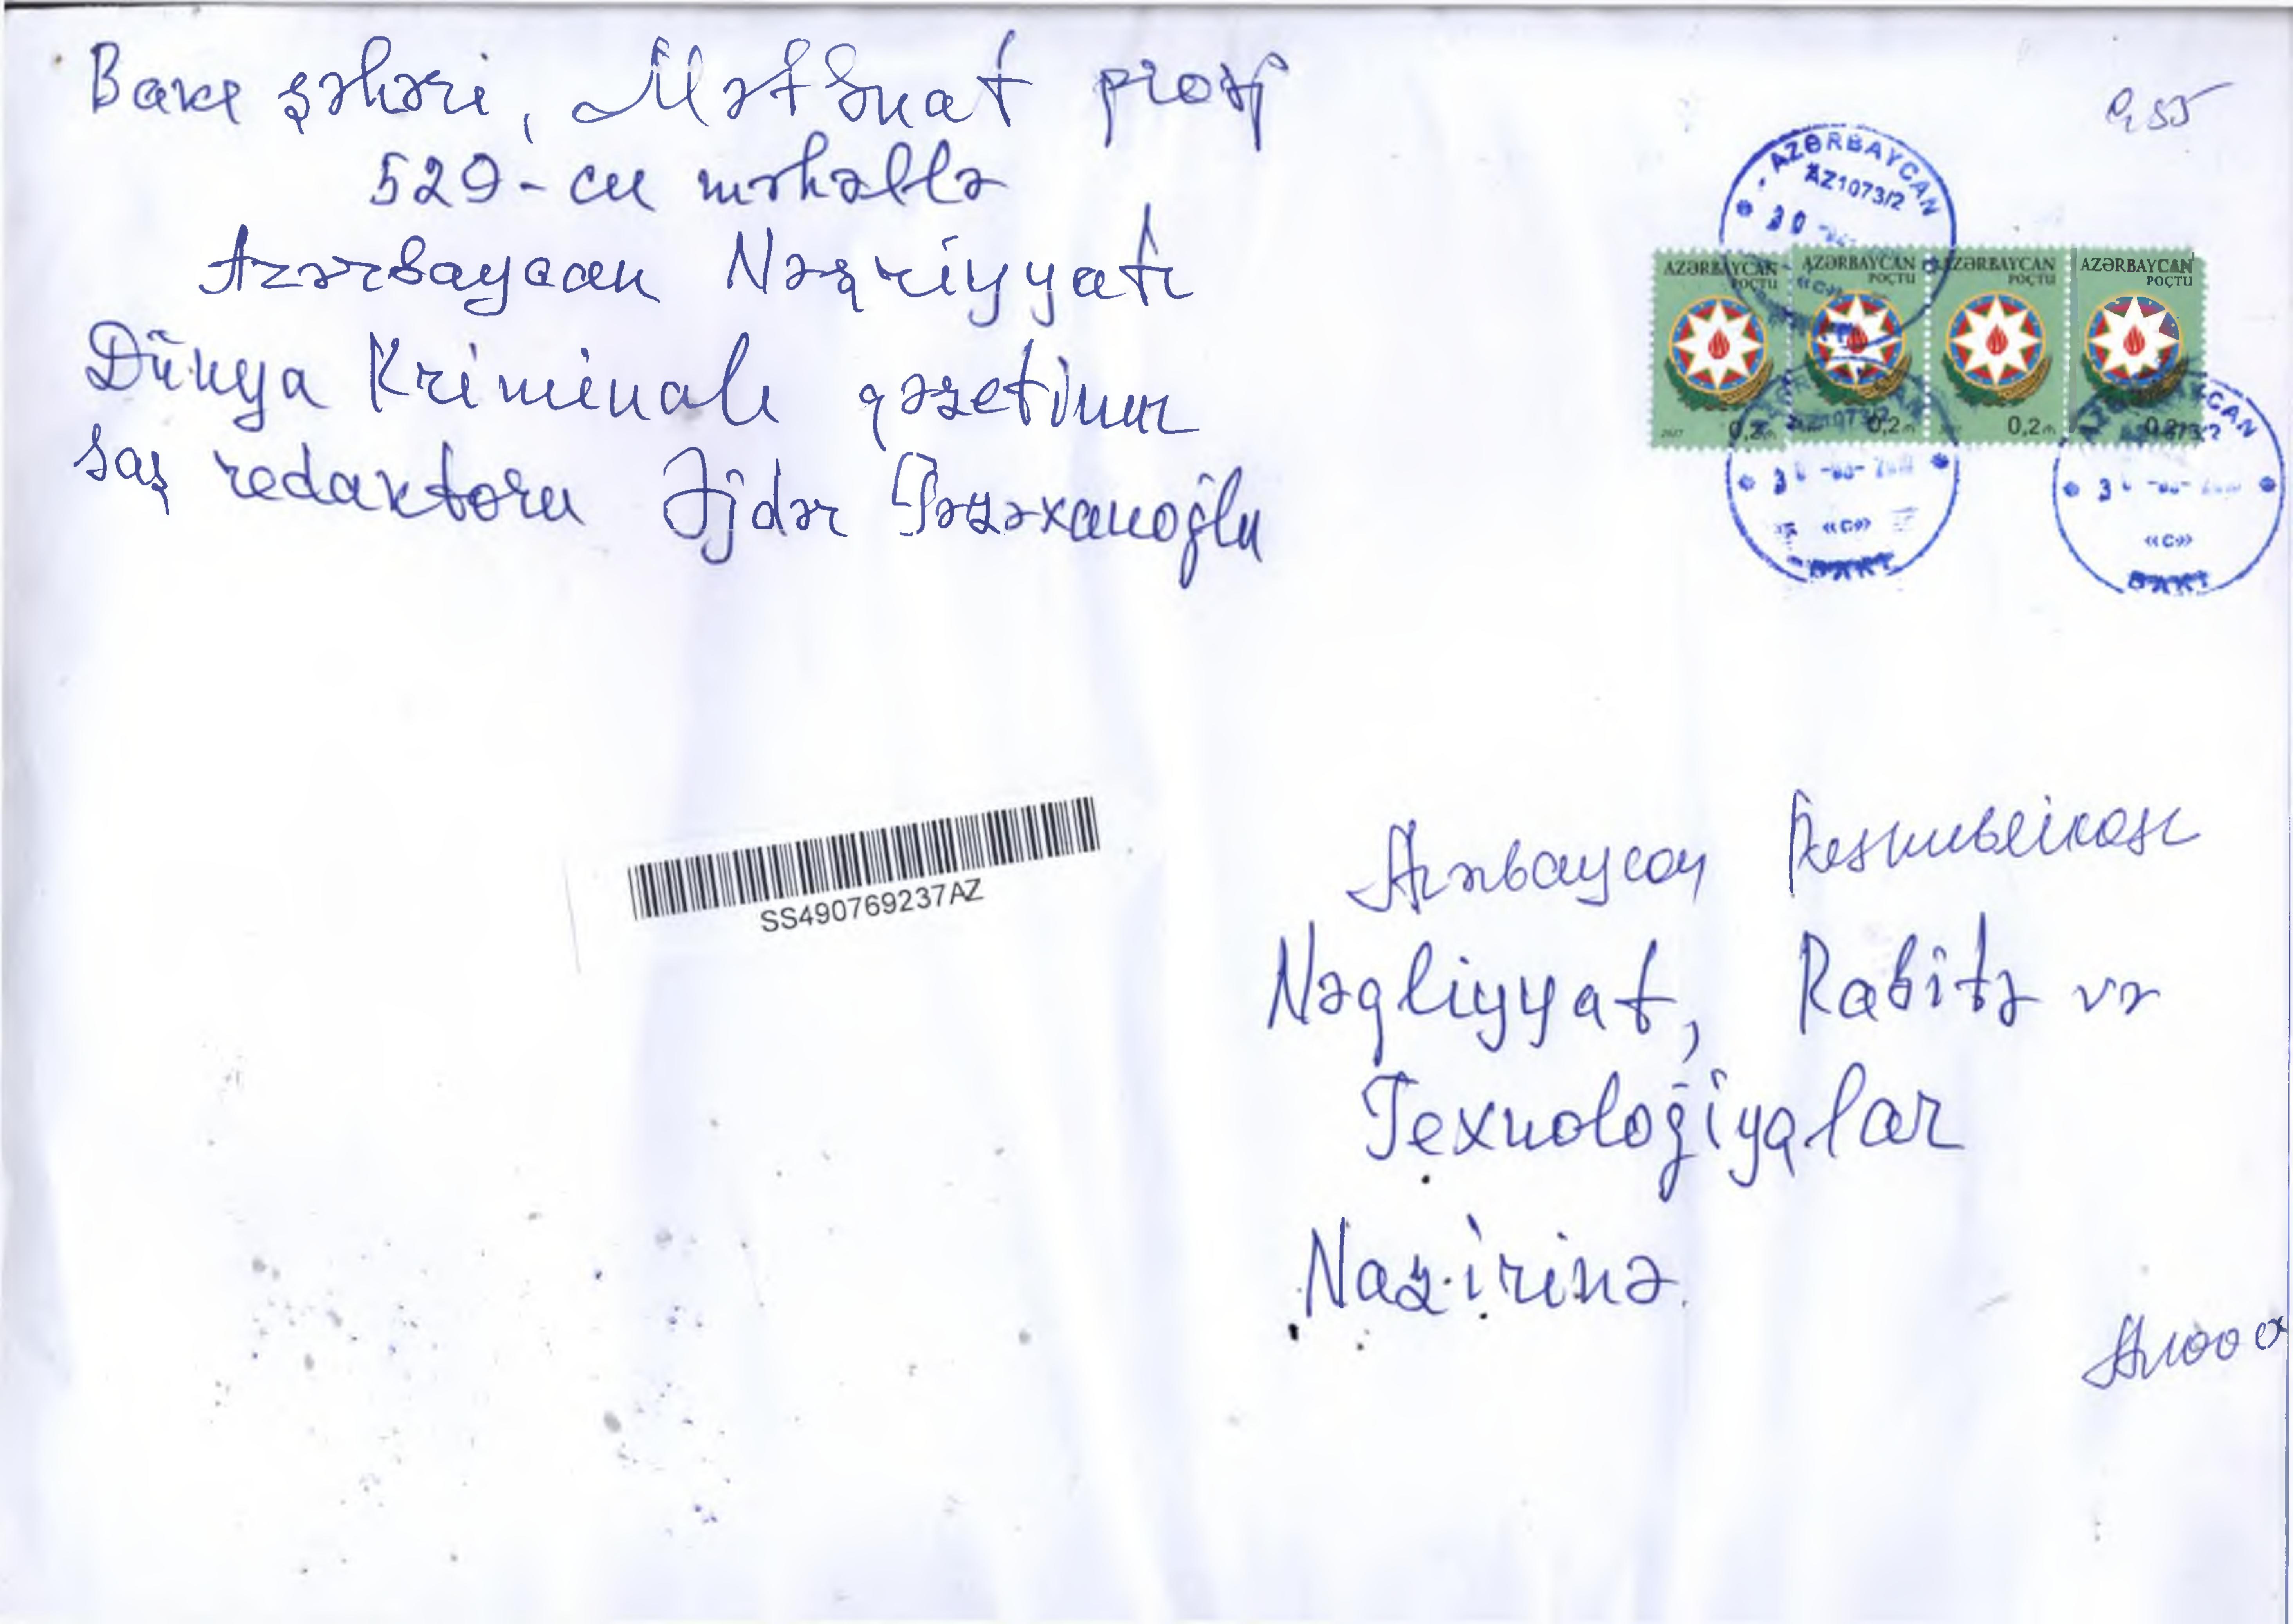 Bakı şəhəri, Mətbuat prosp
529-cu məhəllə
Azərbaycan Nəşriyyatı
Dünya Kriminalı qəzetinin
baş redaktoru Əjdər Fərəxanoğlu
0,55
AZƏRBAYCAN
AZ1073/2
30
AZƏRBAYCAN POÇTU
AZƏRBAYCAN POÇTU
AZƏRBAYCAN POÇTU
AZƏRBAYCAN POÇTU
2017 0,2m
0,2m
0,2m
0,2
AZ1073/2
«C»
BAKI
«C»
BAKI
SS490769237AZ
Azərbaycan Respublikası
Nəqliyyat, Rabitə və
Texnoloğiyalar
Nazirinə
Az1000